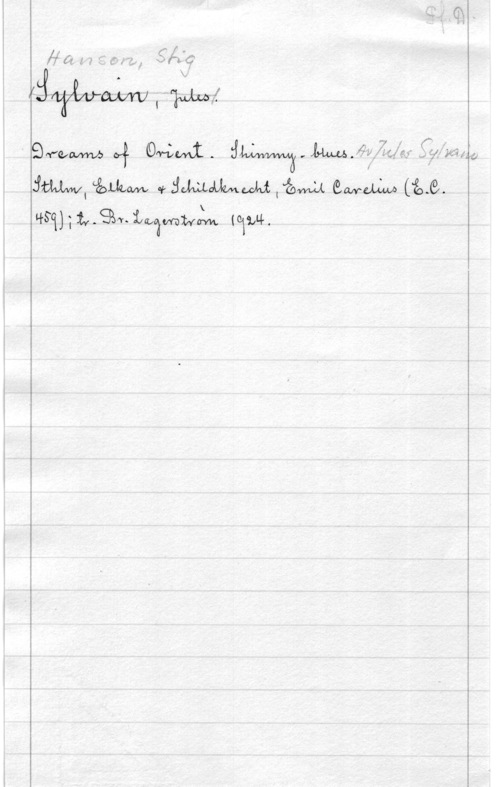 Sf. D.
Hanson, Stig
Sylvain, Jules.
Dreams of Orient. Shimmy-blues. Av Jules Sylvain
Sthlm, Elkan & Schildknecht, Emil Carelius (E.C.
459); tr. Br. Lagerström 1924.